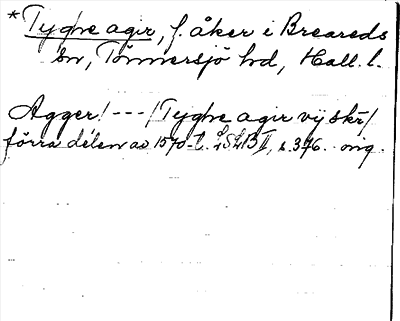 *Tyghe agir, f. åker i Breareds
sn, Tönnersjö hd, Hall. l.
Agger/---/Tyghe agir vij skr/
förra delen av 1570-t. LSLB II, s. 376. orig.